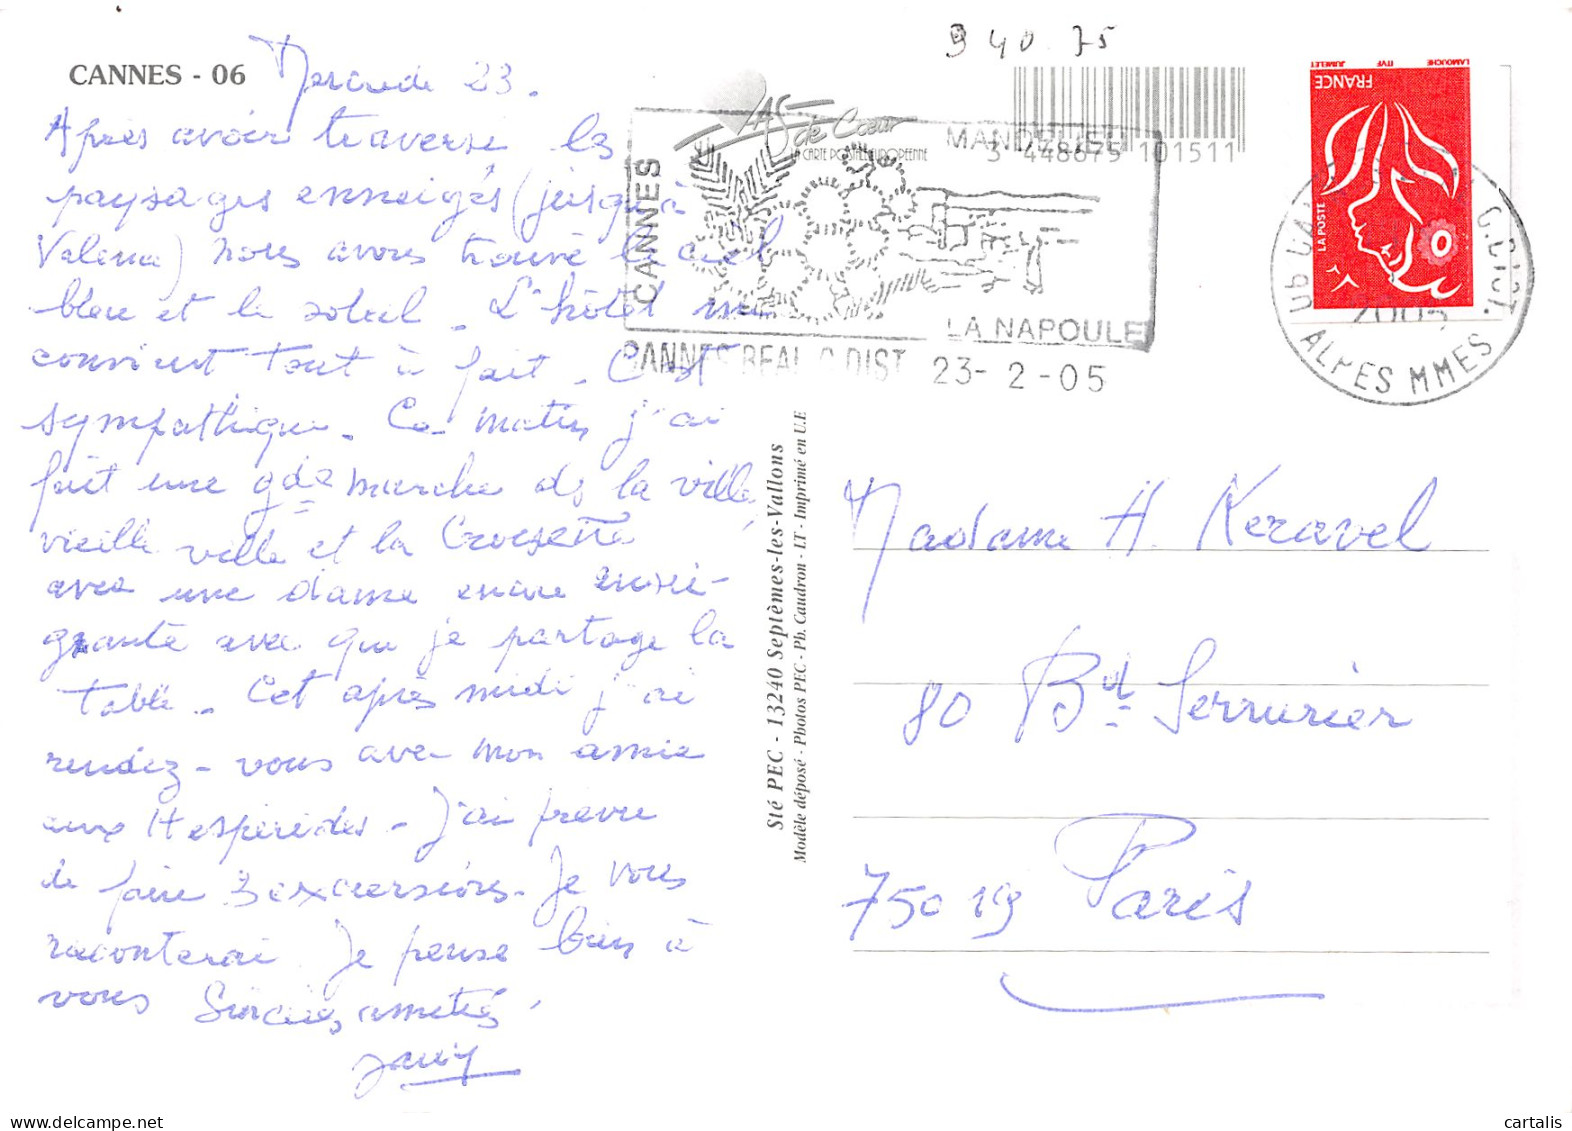 CANNES - 06
Mercredi 23.
Après avoir traversé les
paysages enneigés (jusqu'à
Valence) nous avons trouvé le ciel
bleu et le soleil. L'hôtel me
convient tout à fait. C'est
sympathique. Ce matin j'ai
fait une gde marche ds la ville,
vieille ville et la Croisette
avec une dame encore enseignante
avec qui je partage la
table. Cet après midi j'ai
rendez-vous avec mon amie
aux Hespérides. J'ai prévu
de faire 3 excursions. Je vous
raconterai. Je pense bien à
vous Sincères amitiés.
9 40 75
AS de Cœur
LA CARTE POSTALE EUROPÉENNE
3 448675 101511
CANNES
MANDELIEU
LA NAPOULE
CANNES BEAL C DIST 23-2-05
LAMOUCHE ITVF JUMELET
FRANCE
LA POSTE
06
C.DIST.
2005
ALPES MMES
Sté PEC - 13240 Septèmes-les-Vallons
Modèle déposé - Photos PEC - Ph. Caudron - LT - Imprimé en U.E
Madame H. Keravel
80 Bd Serrurier
75019 Paris
cartalis
www.delcampe.net